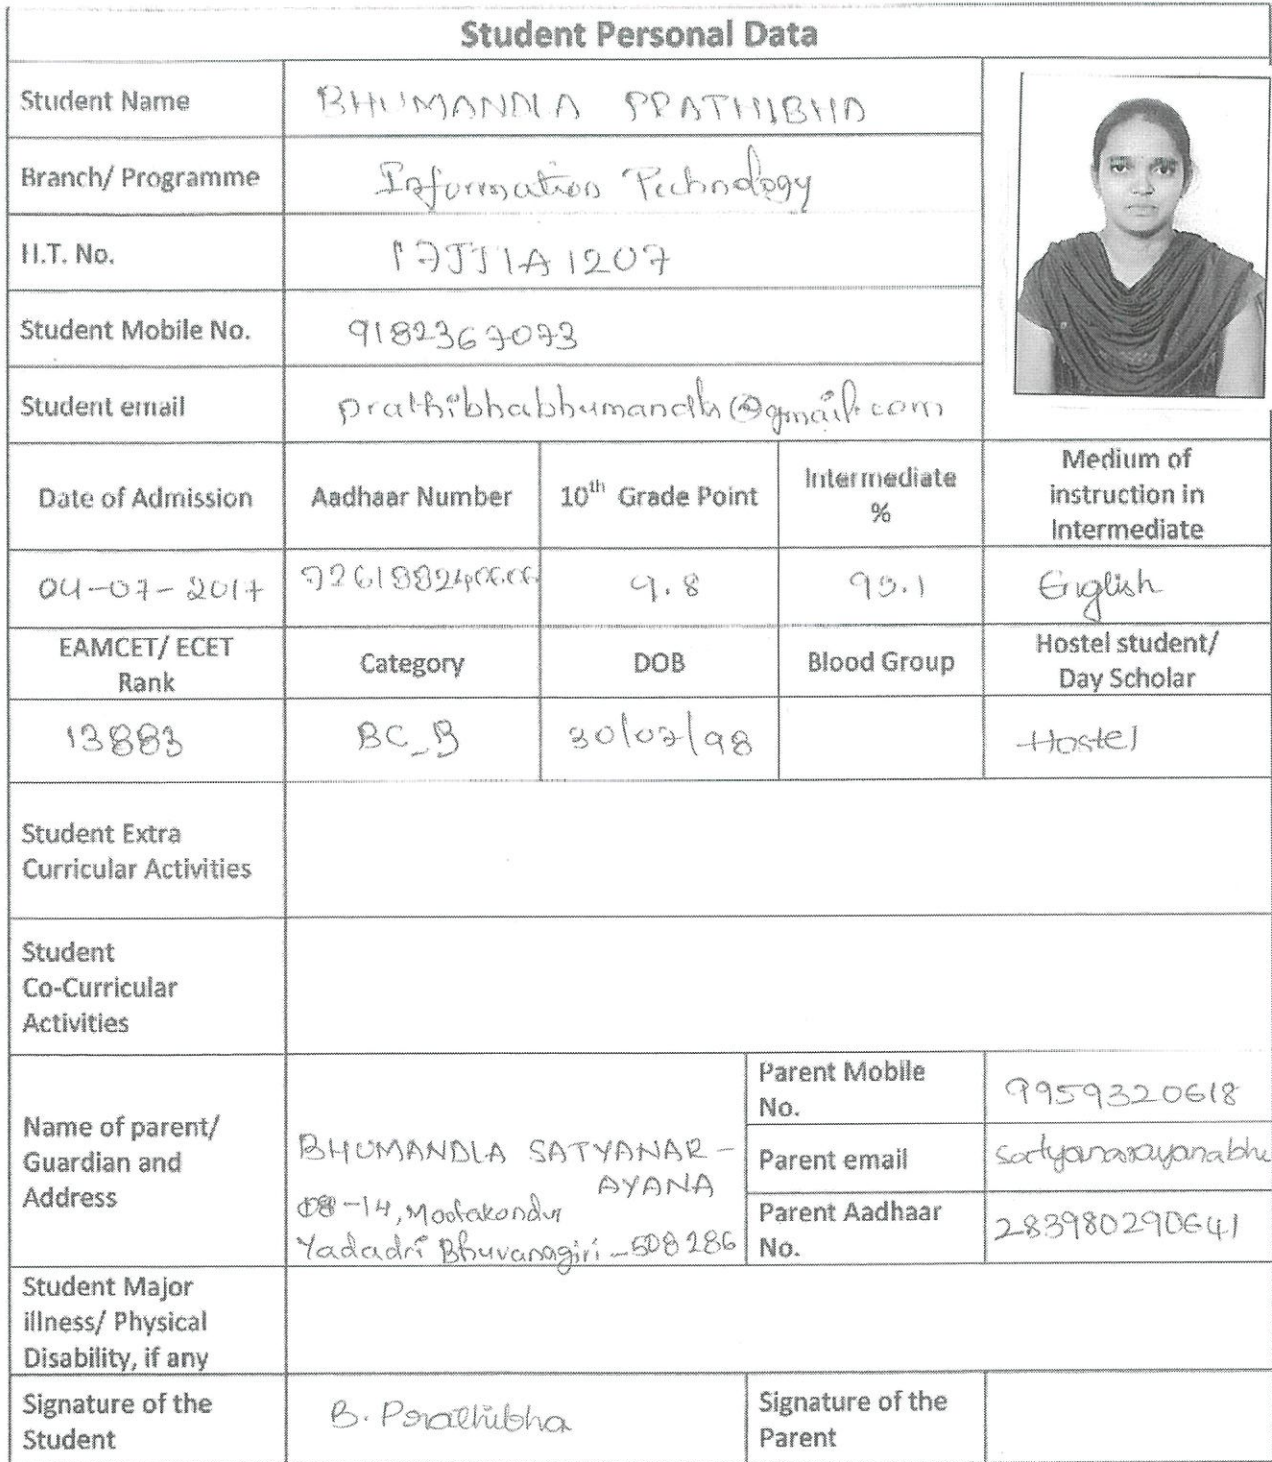 Student Personal Data
Student Name BHUMANDLA PRATHIBHA
Branch/ Programme Information Technology
H.T. No. 17JJ1A1207
Student Mobile No. 9182367073
Student email prathibhabhumandla@gmail.com
Date of Admission Aadhaar Number 10th Grade Point Intermediate % Medium of instruction in Intermediate
04-07-2017 9.8 English
EAMCET/ ECET Rank Category DOB Blood Group Hostel student/ Day Scholar
13883 BC_B 30/07/98 Hostel
Student Extra
Curricular Activities
Student
Co-Curricular
Activities
Name of parent/
Guardian and
Address
BHUMANDLA SATYANAR-
AYANA
08-14, Motakondur
Yadadri Bhuvanagiri-508286
Parent Mobile No. 9959320618
Parent email satyanarayanabhu
Parent Aadhaar No. 283980290641
Student Major
illness/ Physical
Disability, if any
Signature of the Student B. Prathibha
Signature of the Parent